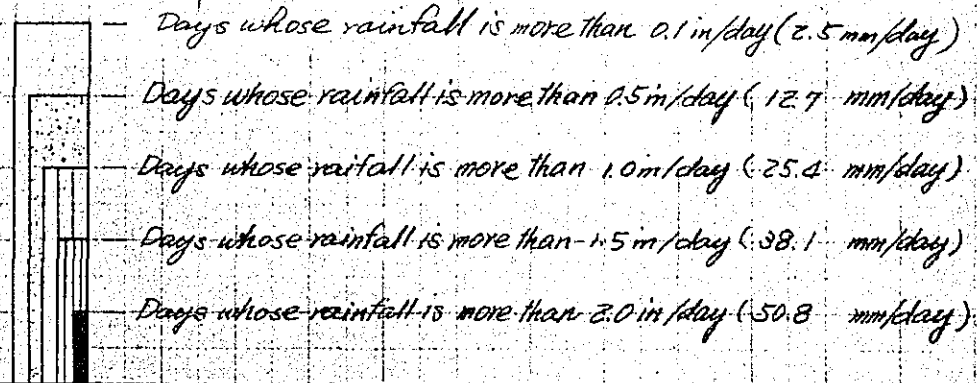 Days whose rainfall is more than 0.1 in/day (2.5 mm/day)
Days whose rainfall is more than 0.5 in/day (12.7 mm/day)
Days whose raifall is more than 1.0 in/day (25.4 mm/day)
Days whose rainfall is more than 1.5 in/day (38.1 mm/day)
Days whose rainfall is more than 2.0 in/day (50.8 mm/day)